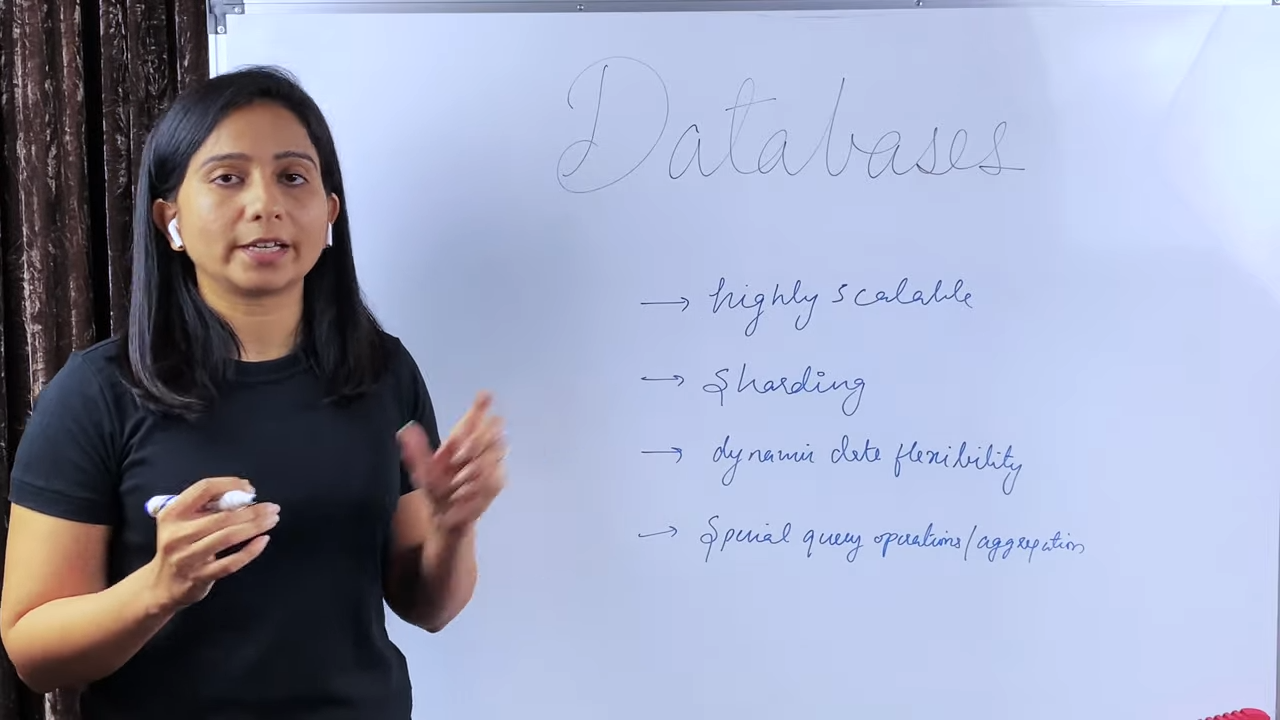 Databases
→ highly scalable
→ Sharding
→ dynamic date flexibility
→ Special query operations/aggregation